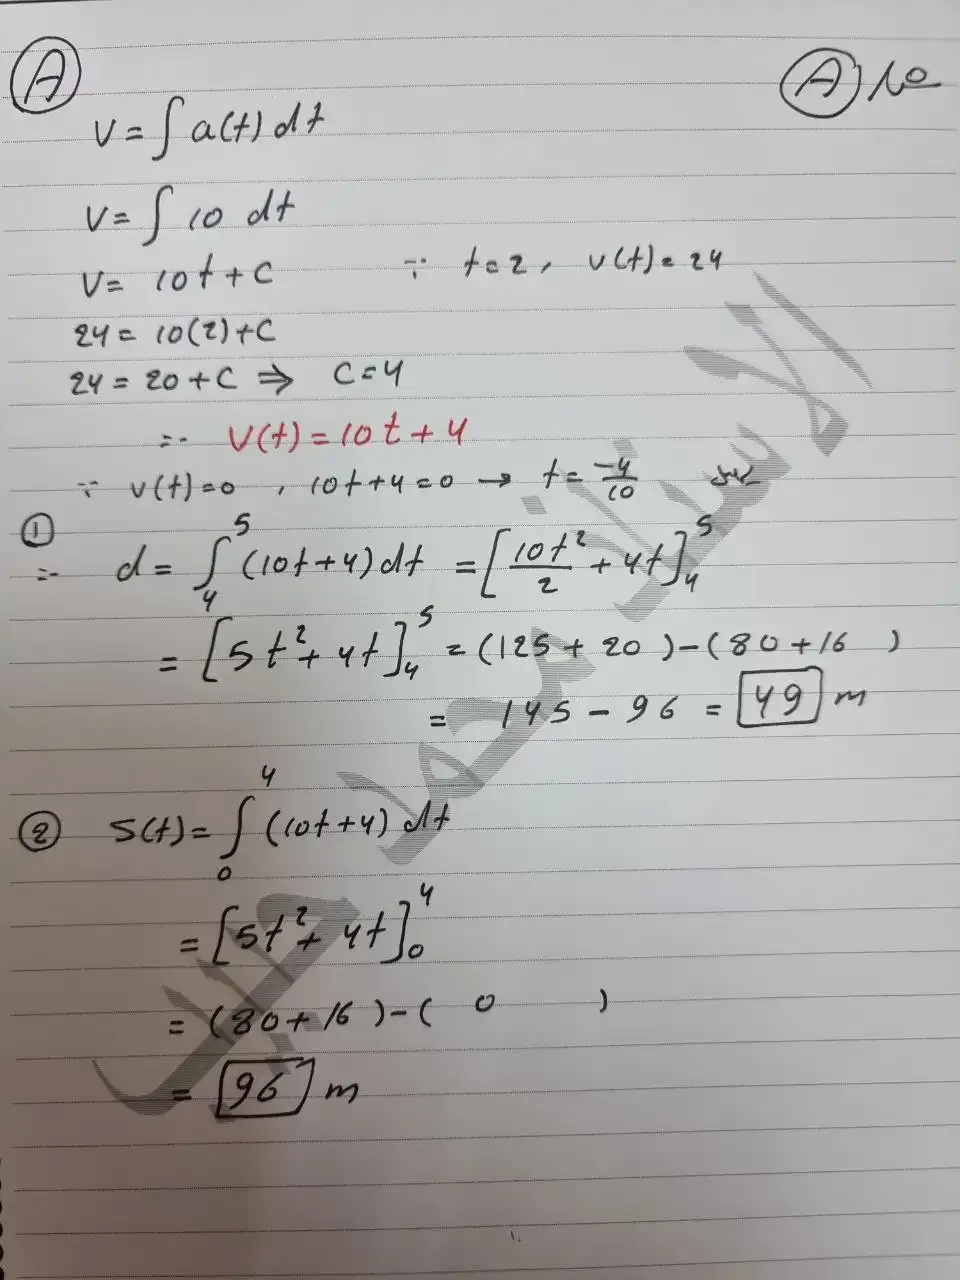 Ⓐ
Ⓐ
V = ∫ a(t) dt
V = ∫ 10 dt
V = 10t + C ∵ t = 2, v(t) = 24
24 = 10(2) + C
24 = 20 + C ⇒ C = 4
∴ V(t) = 10t + 4
∵ v(t) = 0, 10t + 4 = 0 → t = -4/10
①
∴ d = ∫₄⁵ (10t + 4) dt = [10t²/2 + 4t]₄⁵
= [5t² + 4t]₄⁵ = (125 + 20) - (80 + 16)
= 145 - 96 = 49 m
② S(t) = ∫₀⁴ (10t + 4) dt
= [5t² + 4t]₀⁴
= (80 + 16) - ( 0 )
= 96 m
الاستاذ محمد